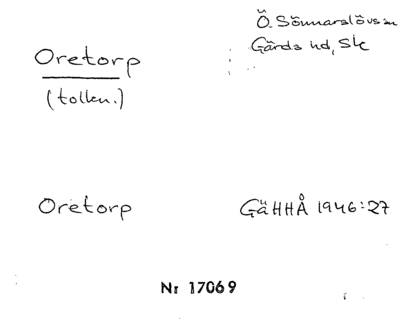 Oretorp
(tolkn.)
Ö. Sönnarslövs sn
Gärds hd, Sk
Oretorp
GäHHÅ 1946:27
Nr 17069